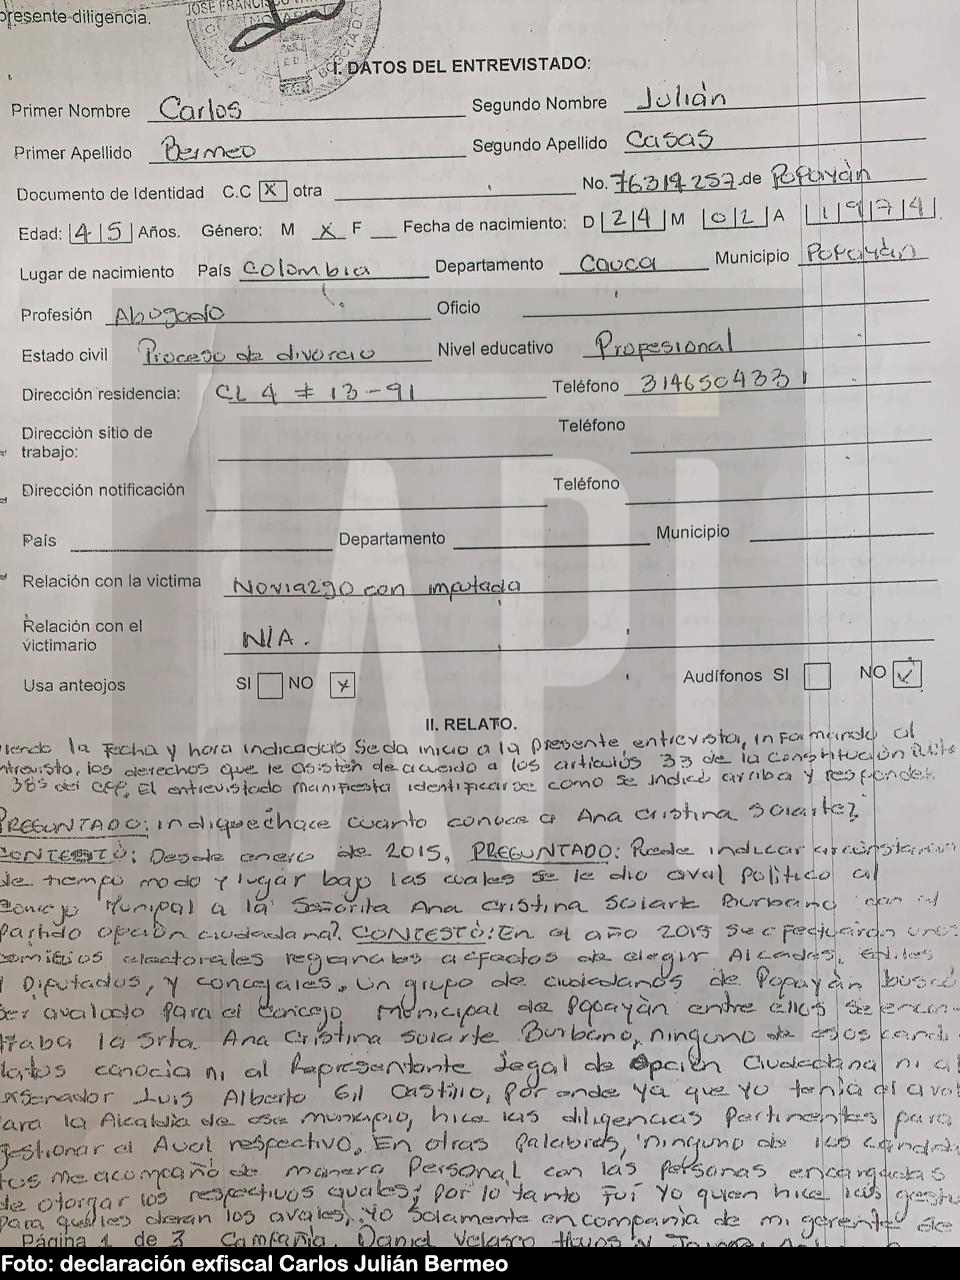 presente diligencia.
JOSE FRANCISCO
I. DATOS DEL ENTREVISTADO:
Primer Nombre Carlos Segundo Nombre Julián
Primer Apellido Bermeo Segundo Apellido Casas
Documento de Identidad C.C X otra No. 76317257 de Popayán
Edad: 45 Años. Género: M X F Fecha de nacimiento: D 24 M 02 A 1974
Lugar de nacimiento País Colombia Departamento Cauca Municipio Popayán
Profesión Abogado Oficio
Estado civil Proceso de divorcio Nivel educativo Profesional
Dirección residencia: CL 4 # 13-91 Teléfono 3146504331
Dirección sitio de trabajo: Teléfono
Dirección notificación Teléfono
País Departamento Municipio
Relación con la victima Noviazgo con imputada
Relación con el victimario N/A.
Usa anteojos SI NO X Audífonos SI NO ✓
II. RELATO.
iendo la fecha y hora indicadas se da inicio a la presente entrevista, informando al
ntrevista, los derechos que le asisten de acuerdo a los articulos 33 de la Constitución
385 del CPP, El entrevistado manifiesta identificarse como se indicó arriba y responder.
PREGUNTADO: indique hace cuanto conoce a Ana Cristina Solarte?
CONTESTÓ: Desde enero de 2015, PREGUNTADO: Puede indicar circunstancias
de tiempo modo y lugar bajo las cuales se le dio aval político al
Concejo Municipal a la Señorita Ana Cristina Solarte Burbano con el
Partido opción ciudadana?. CONTESTÓ: En el año 2015 se efectuaron unos
comicios electorales regionales a efectos de elegir Alcaldes, Ediles
y Diputados, y concejales. Un grupo de ciudadanos de Popayán buscó
ser avalado para el Concejo Municipal de Popayán entre ellos se encon
traba la Srta. Ana Cristina Solarte Burbano, ninguno de esos candi
datos conocia ni al Representante Legal de Opción Ciudadana ni al
exsenador Luis Alberto Gil Castillo, por ende ya que yo tenía el aval
para la Alcaldía de ese municipio, hice las diligencias pertinentes para
gestionar el Aval respectivo. En otras palabras, ninguno de los candida
tos me acompañó de manera Personal con las personas encargadas
de otorgar los respectivos avales; por lo tanto fuí yo quien hice las gestio
para que les dieran los avales, yo solamente en compañia de mi gerente de
Página 1 de 3 Campaña, Daniel Velasco Hoyos y
API
Foto: declaración exfiscal Carlos Julián Bermeo